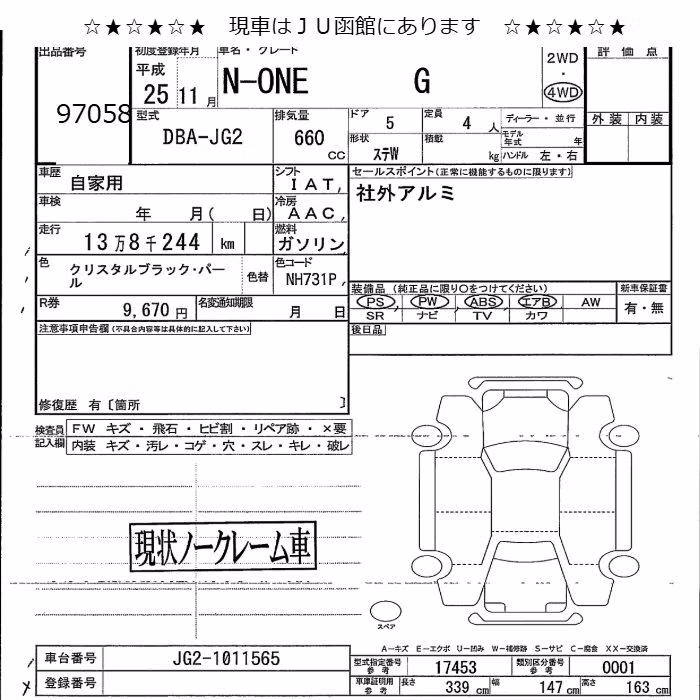 ☆★☆★☆★ 現車はＪＵ函館にあります ☆★☆★☆★
出品番号 初度登録年月 車名・グレード 評価点
97058 平成 25 11月 N-ONE G 2WD ・ 4WD
型式 排気量 ドア 定員 ディーラー・並行 外装 内装
DBA-JG2 660 CC 5 4 人 モデル年式 年
形状 積載 ハンドル 左・右
ステW kg
車歴 自家用 シフト IAT,
セールスポイント(正常に機能するものに限ります)
社外アルミ
車検 年 月( 日) 冷房 AAC,
走行 13万8千244 km 燃料 ガソリン
色 クリスタルブラック・パール 色替 色コード NH731P,
装備品 (純正品に限り○をつけてください) 新車保証書
PS, PW, ABS, エアB, AW 有・無
SR ナビ TV カワ
R券 9,670円 名変通知期限 月 日
後日品
注意事項申告欄(不具合内容等は具体的に記入して下さい)
修復歴 有〔箇所 〕
検査員記入欄 FW キズ・飛石・ヒビ割・リペア跡・×要
内装 キズ・汚レ・コゲ・穴・スレ・キレ・破レ
現状ノークレーム車
スペア
A－キズ E－エクボ U－凹み W－補修跡 S－サビ C－腐食 XX－交換済
車台番号 JG2-1011565
型式指定番号 参考 17453 類別区分番号 参考 0001
登録番号
車庫証明用 参考 長さ 339 cm 幅 147 cm 高さ 163 cm